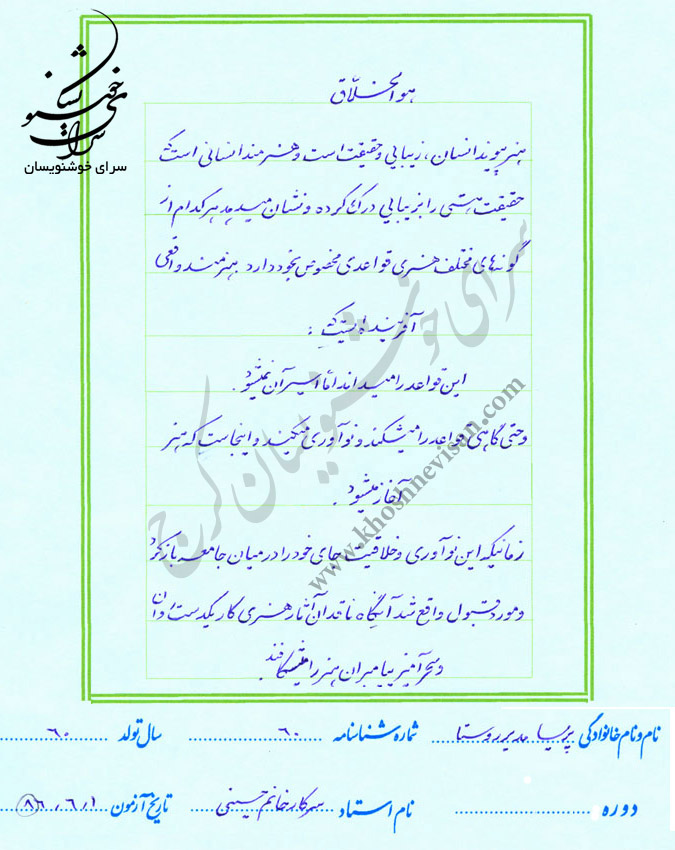 سرای خوشنویسان
هوالخلاق
هنر پیوند انسان، زیبایی و حقیقت است و هنرمند انسانی است که
حقیقت هستی را بزیبایی درک کرده و نشان میدهد هر کدام از
گونه‌های مختلف هنری قواعدی مخصوص بخود دارد هنرمند واقعی
آفریننده ایست که :
این قواعد را میداند اما اسیر آن نمیشود.
و حتی گاهی قواعد را میشکند و نوآوری میکند و اینجاست که هنر
آغاز میشود.
زمانیکه این نوآوری و خلاقیت جای خود را در میان جامعه باز کرد
و مورد قبول واقع شد آنگاه ناقدان آثار هنری کار یکدست و روان
و سحرآمیز پیامبران هنر را میشکافند.
سرای خوشنویسان کرج
www.khoshnevisan.com
نام و نام خانوادگی پریسا مدیر روستا شماره شناسنامه ۶۰ سال تولد ۶۰
دوره نام استاد سرکار خانم حسینی تاریخ آزمون ۸۶/۶/۱